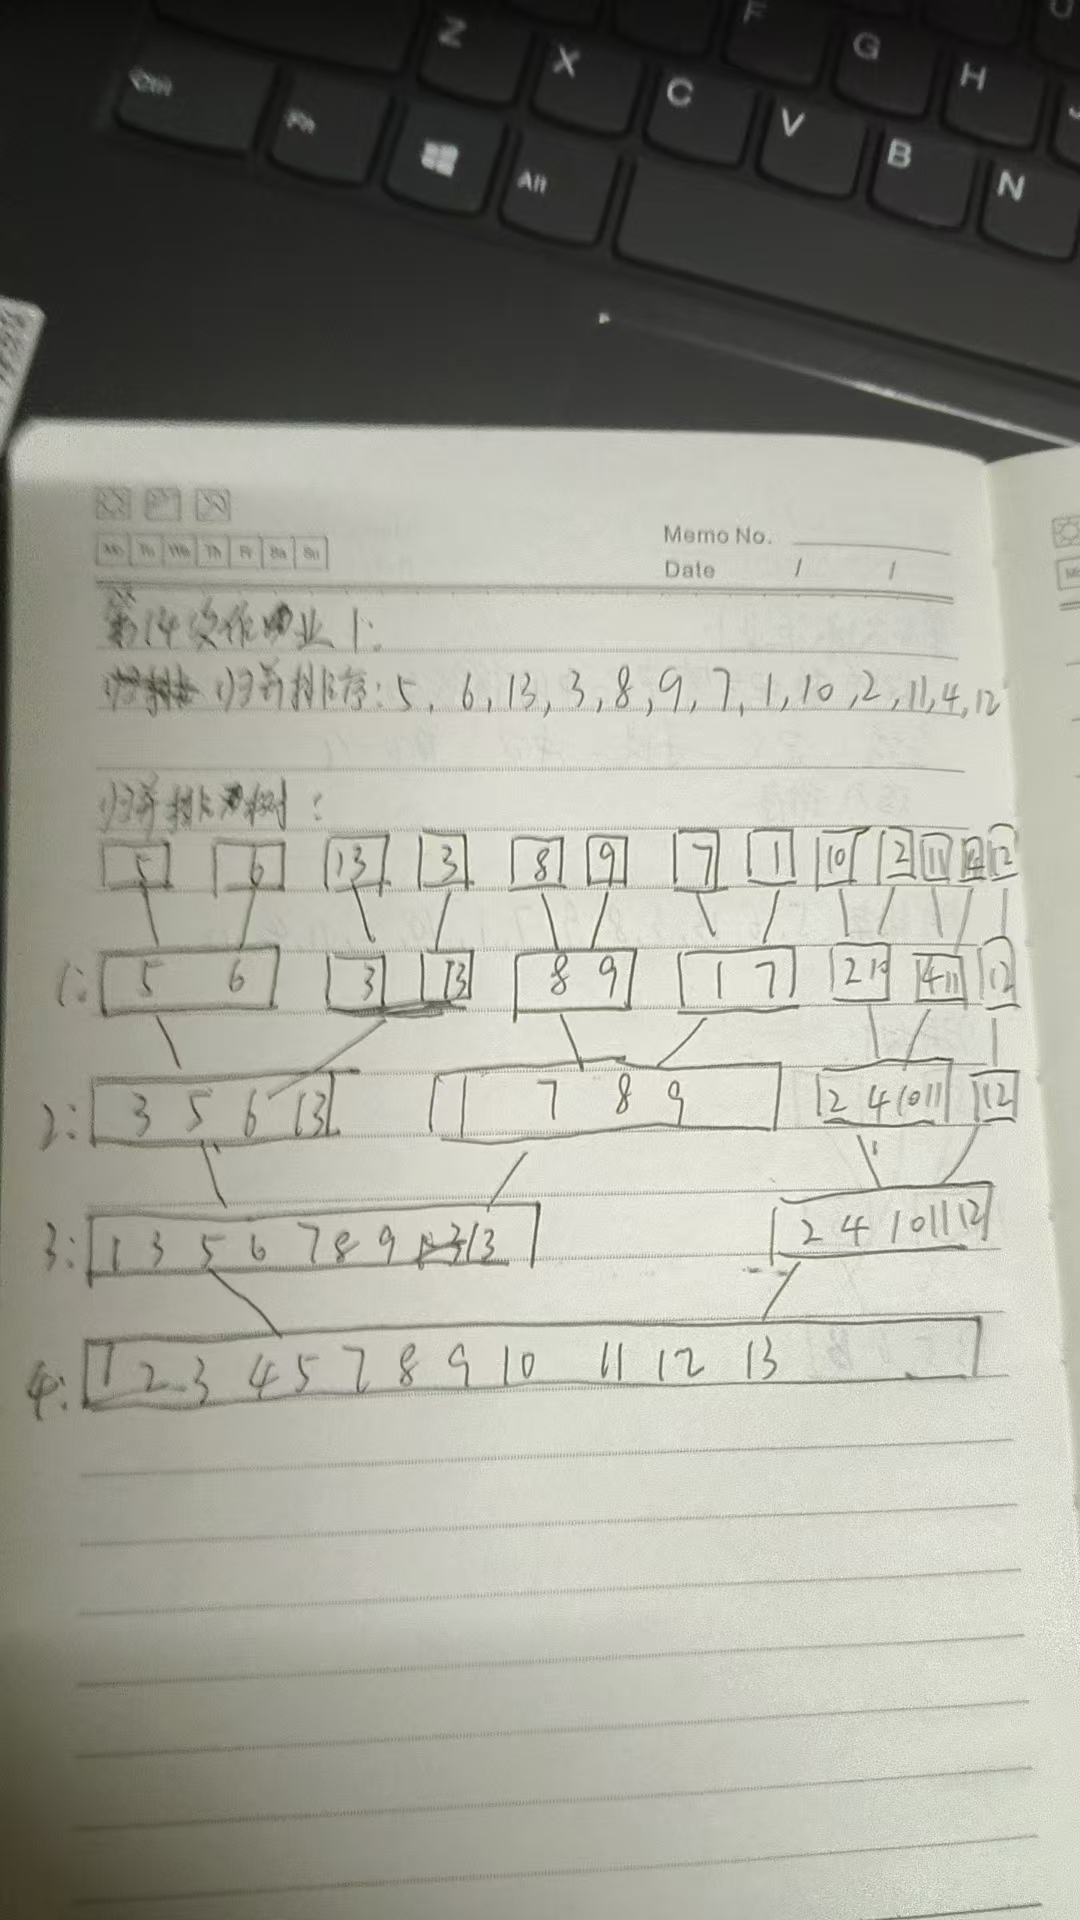 Z X C V B N F G H
Ctrl Fn Alt
Memo No.
Mo Tu We Th Fr Sa Su
Date / /
第14次作业1:
归并排序:5,6,13,3,8,9,7,1,10,2,11,4,12
归并排序树:
5 6 13 3 8 9 7 1 10 2 11 4 12
1: 5 6 3 13 8 9 1 7 2 10 4 11 12
2: 3 5 6 13 1 7 8 9 2 4 10 11 12
3: 1 3 5 6 7 8 9 13 2 4 10 11 12
4: 1 2 3 4 5 7 8 9 10 11 12 13